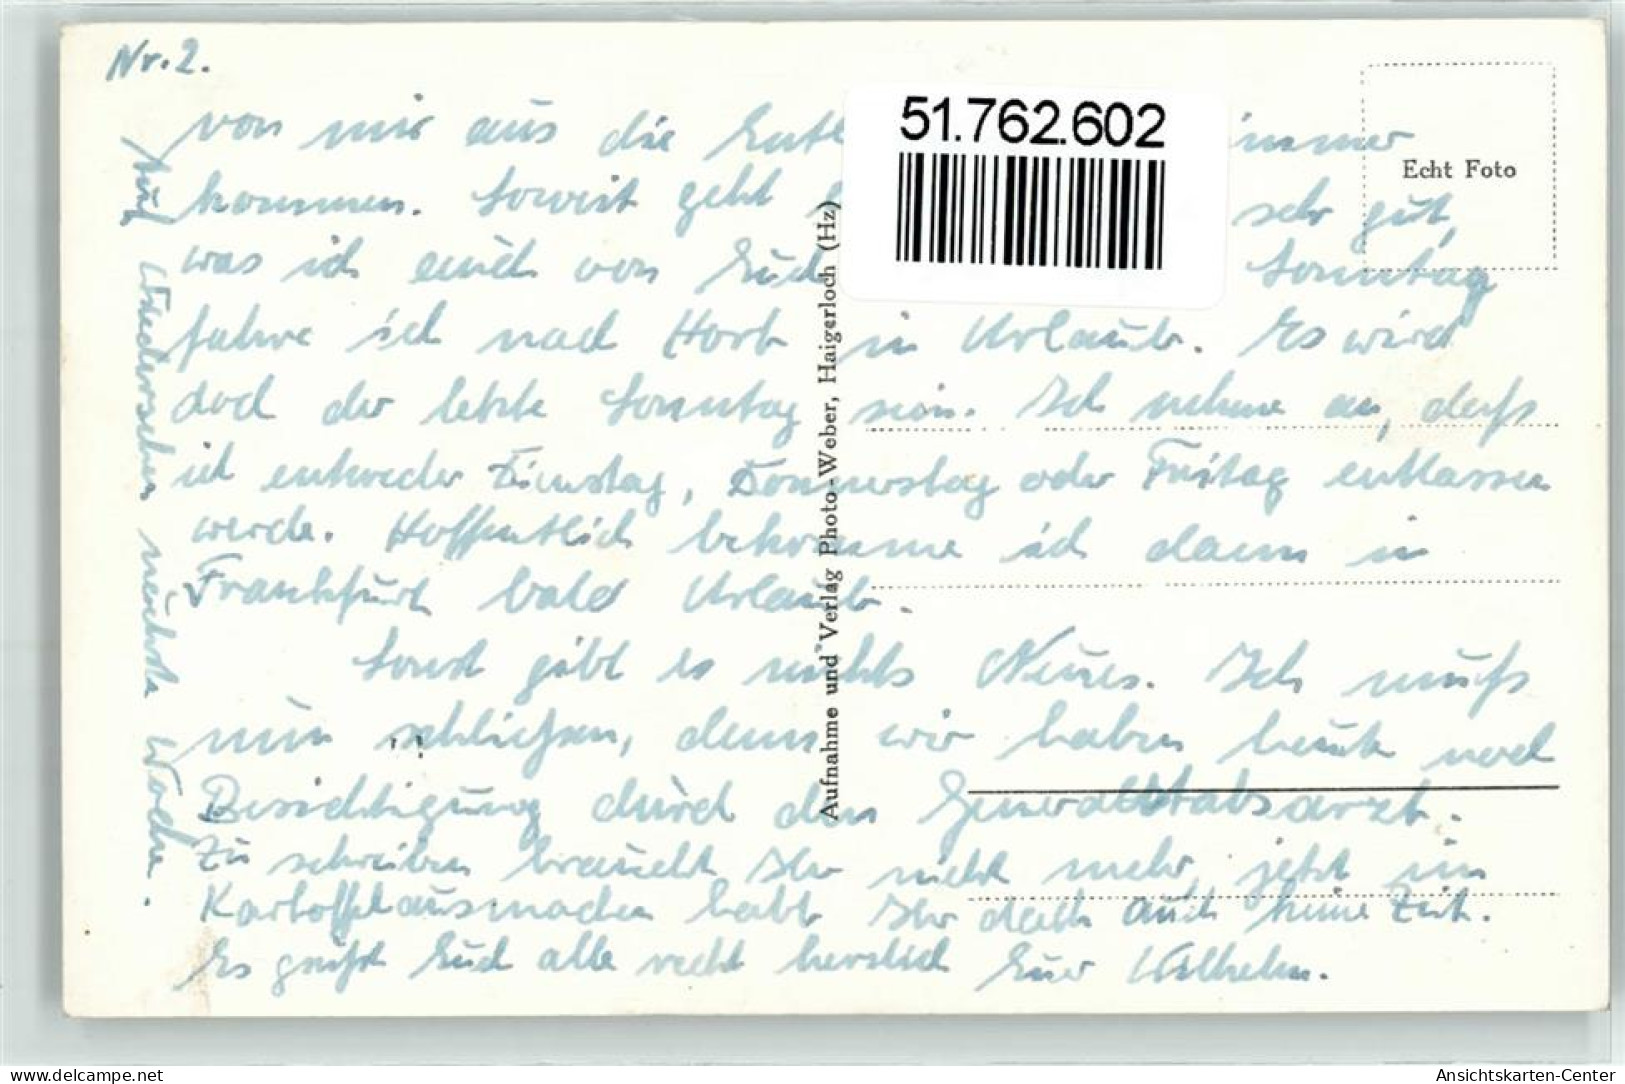 Nr. 2.
von mir aus die immer
kommen. Soweit geht sehr gut,
was ich auch von Euch Sonntag
fahre ich nach Horb in Urlaub. Es wird
doch der letzte Sonntag sein. Ich nehme an, dass
ich entweder Dienstag, Donnerstag oder Freitag entlassen
werde. Hoffentlich bekomme ich dann in
Frankfurt bald Urlaub.
Sonst gibt es nichts Neues. Ich muß
nun schließen, denn wir haben heute noch
Besichtigung durch den Generalstabsarzt.
Zu schreiben braucht Ihr nicht mehr, jetzt im
Kartoffelausmachen habt Ihr doch auch keine Zeit.
Es grüßt Euch alle recht herzlich Euer Wilhelm.
Auf Wiedersehen nächste Woche.
Aufnahme und Verlag Photo-Weber, Haigerloch (Hz)
51.762.602
Echt Foto
delcampe.net
Ansichtskarten-Center